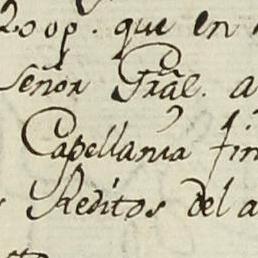 200p. que en
Señor Grãl. a
Capellania fin
Reditos del a